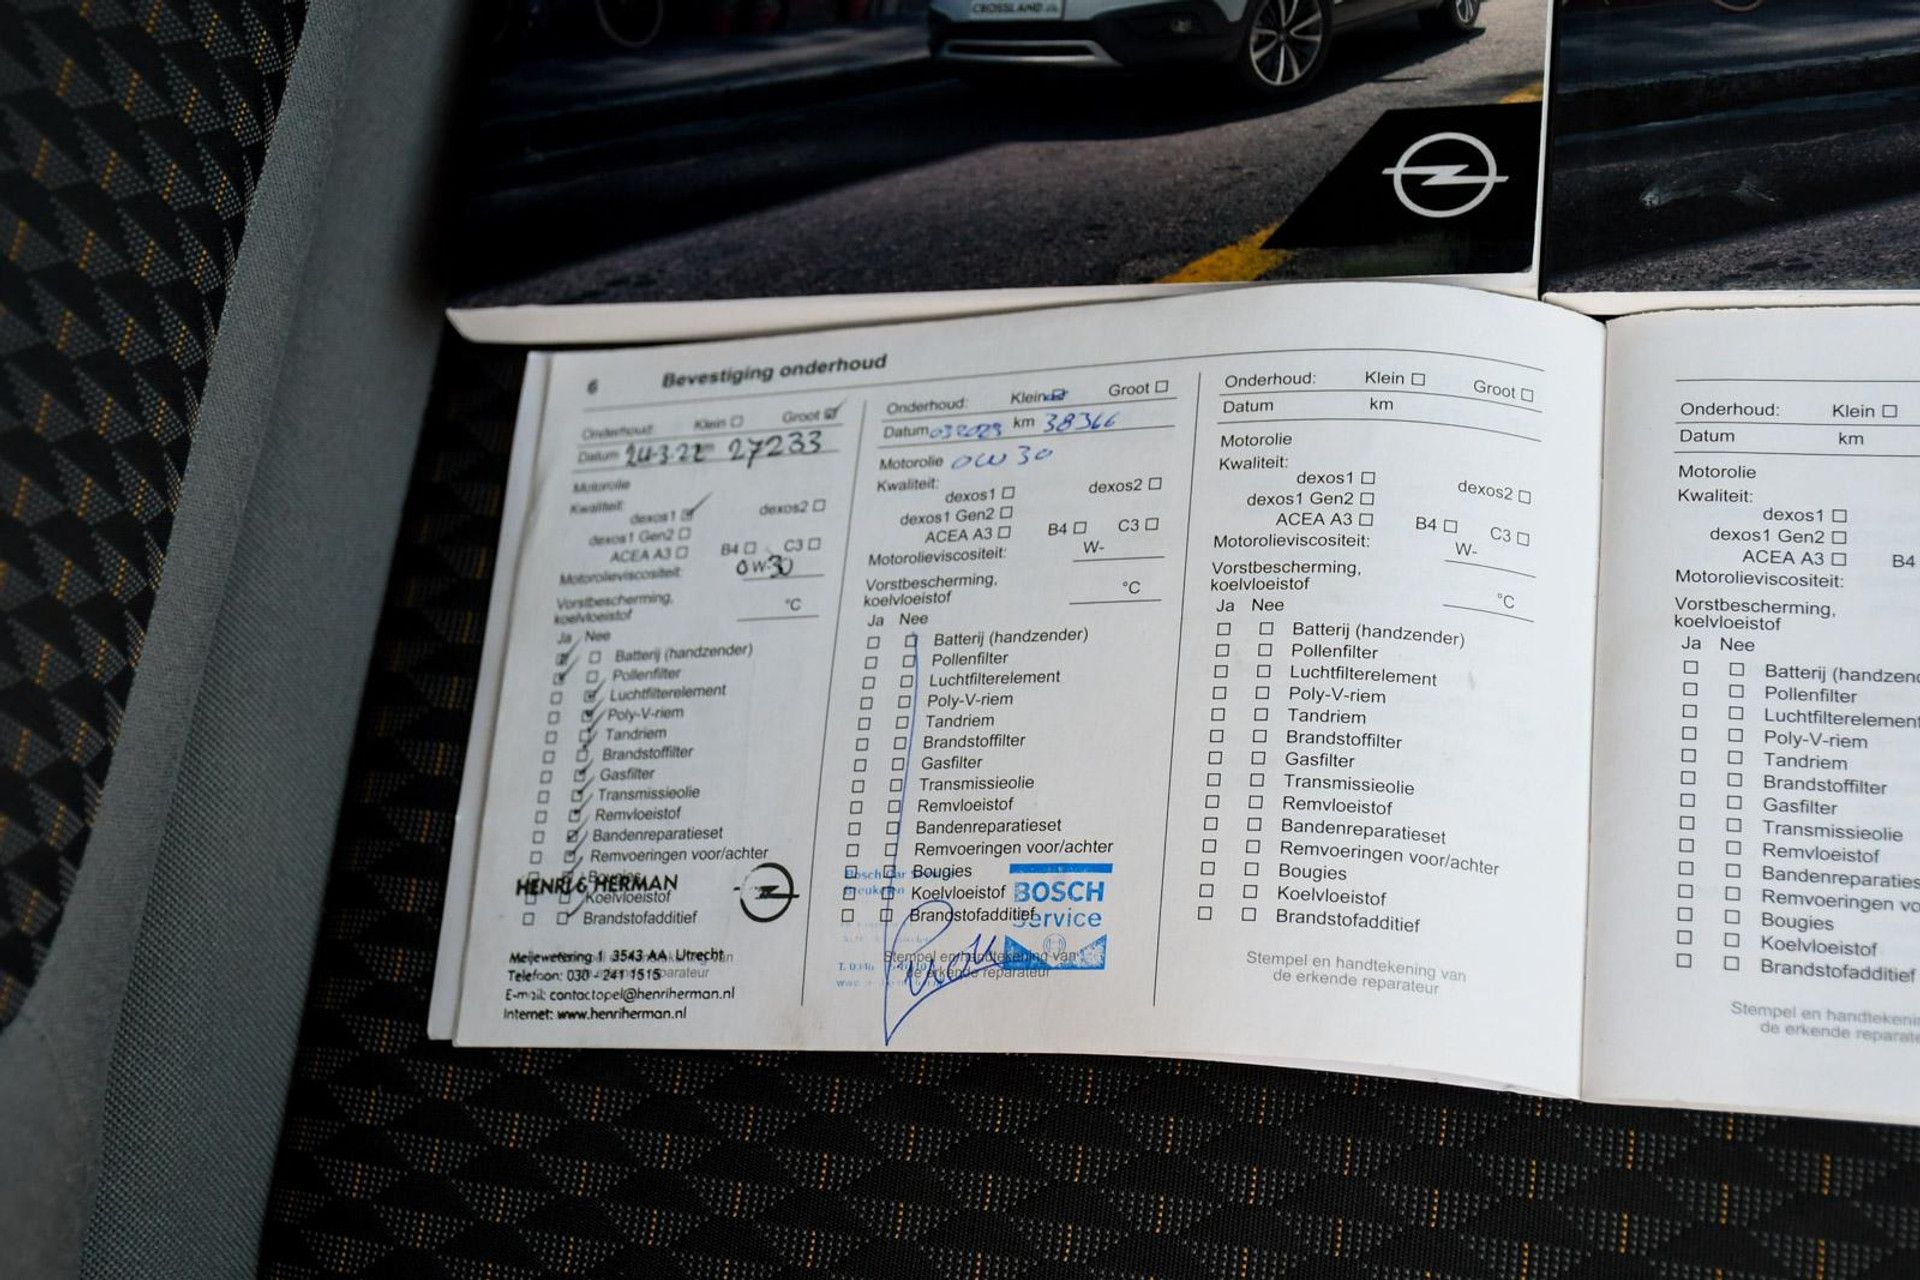 CROSSLAND
6 Bevestiging onderhoud
Onderhoud: Klein Groot
Datum 24-3-22 km 27233
Motorolie
Kwaliteit:
dexos1 dexos2
dexos1 Gen2
ACEA A3 B4 C3
Motorolieviscositeit: 0 W-30
Vorstbescherming,
koelvloeistof °C
Ja Nee
Batterij (handzender)
Pollenfilter
Luchtfilterelement
Poly-V-riem
Tandriem
Brandstoffilter
Gasfilter
Transmissieolie
Remvloeistof
Bandenreparatieset
Remvoeringen voor/achter
Bougies
HENRI & HERMAN
Koelvloeistof
Brandstofadditief
Meijewetering 1 3543 AA Utrecht
Telefoon: 030 - 241 1515
E-mail: contactopel@henriherman.nl
Internet: www.henriherman.nl
Onderhoud: Klein Groot
Datum km 38366
Motorolie 0W 30
Kwaliteit:
dexos1 dexos2
dexos1 Gen2
ACEA A3 B4 C3
Motorolieviscositeit: W-
Vorstbescherming,
koelvloeistof °C
Ja Nee
Batterij (handzender)
Pollenfilter
Luchtfilterelement
Poly-V-riem
Tandriem
Brandstoffilter
Gasfilter
Transmissieolie
Remvloeistof
Bandenreparatieset
Remvoeringen voor/achter
Bougies
Koelvloeistof
Brandstofadditief
BOSCH
Service
Stempel en handtekening van
de erkende reparateur
Onderhoud: Klein Groot
Datum km
Motorolie
Kwaliteit:
dexos1 dexos2
dexos1 Gen2
ACEA A3 B4 C3
Motorolieviscositeit: W-
Vorstbescherming,
koelvloeistof °C
Ja Nee
Batterij (handzender)
Pollenfilter
Luchtfilterelement
Poly-V-riem
Tandriem
Brandstoffilter
Gasfilter
Transmissieolie
Remvloeistof
Bandenreparatieset
Remvoeringen voor/achter
Bougies
Koelvloeistof
Brandstofadditief
Stempel en handtekening van
de erkende reparateur
Onderhoud: Klein
Datum km
Motorolie
Kwaliteit:
dexos1
dexos1 Gen2
ACEA A3 B4
Motorolieviscositeit:
Vorstbescherming,
koelvloeistof
Ja Nee
Batterij (handzend
Pollenfilter
Luchtfilterelement
Poly-V-riem
Tandriem
Brandstoffilter
Gasfilter
Transmissieolie
Remvloeistof
Bandenreparaties
Remvoeringen vo
Bougies
Koelvloeistof
Brandstofadditief
Stempel en handtekenin
de erkende reparate